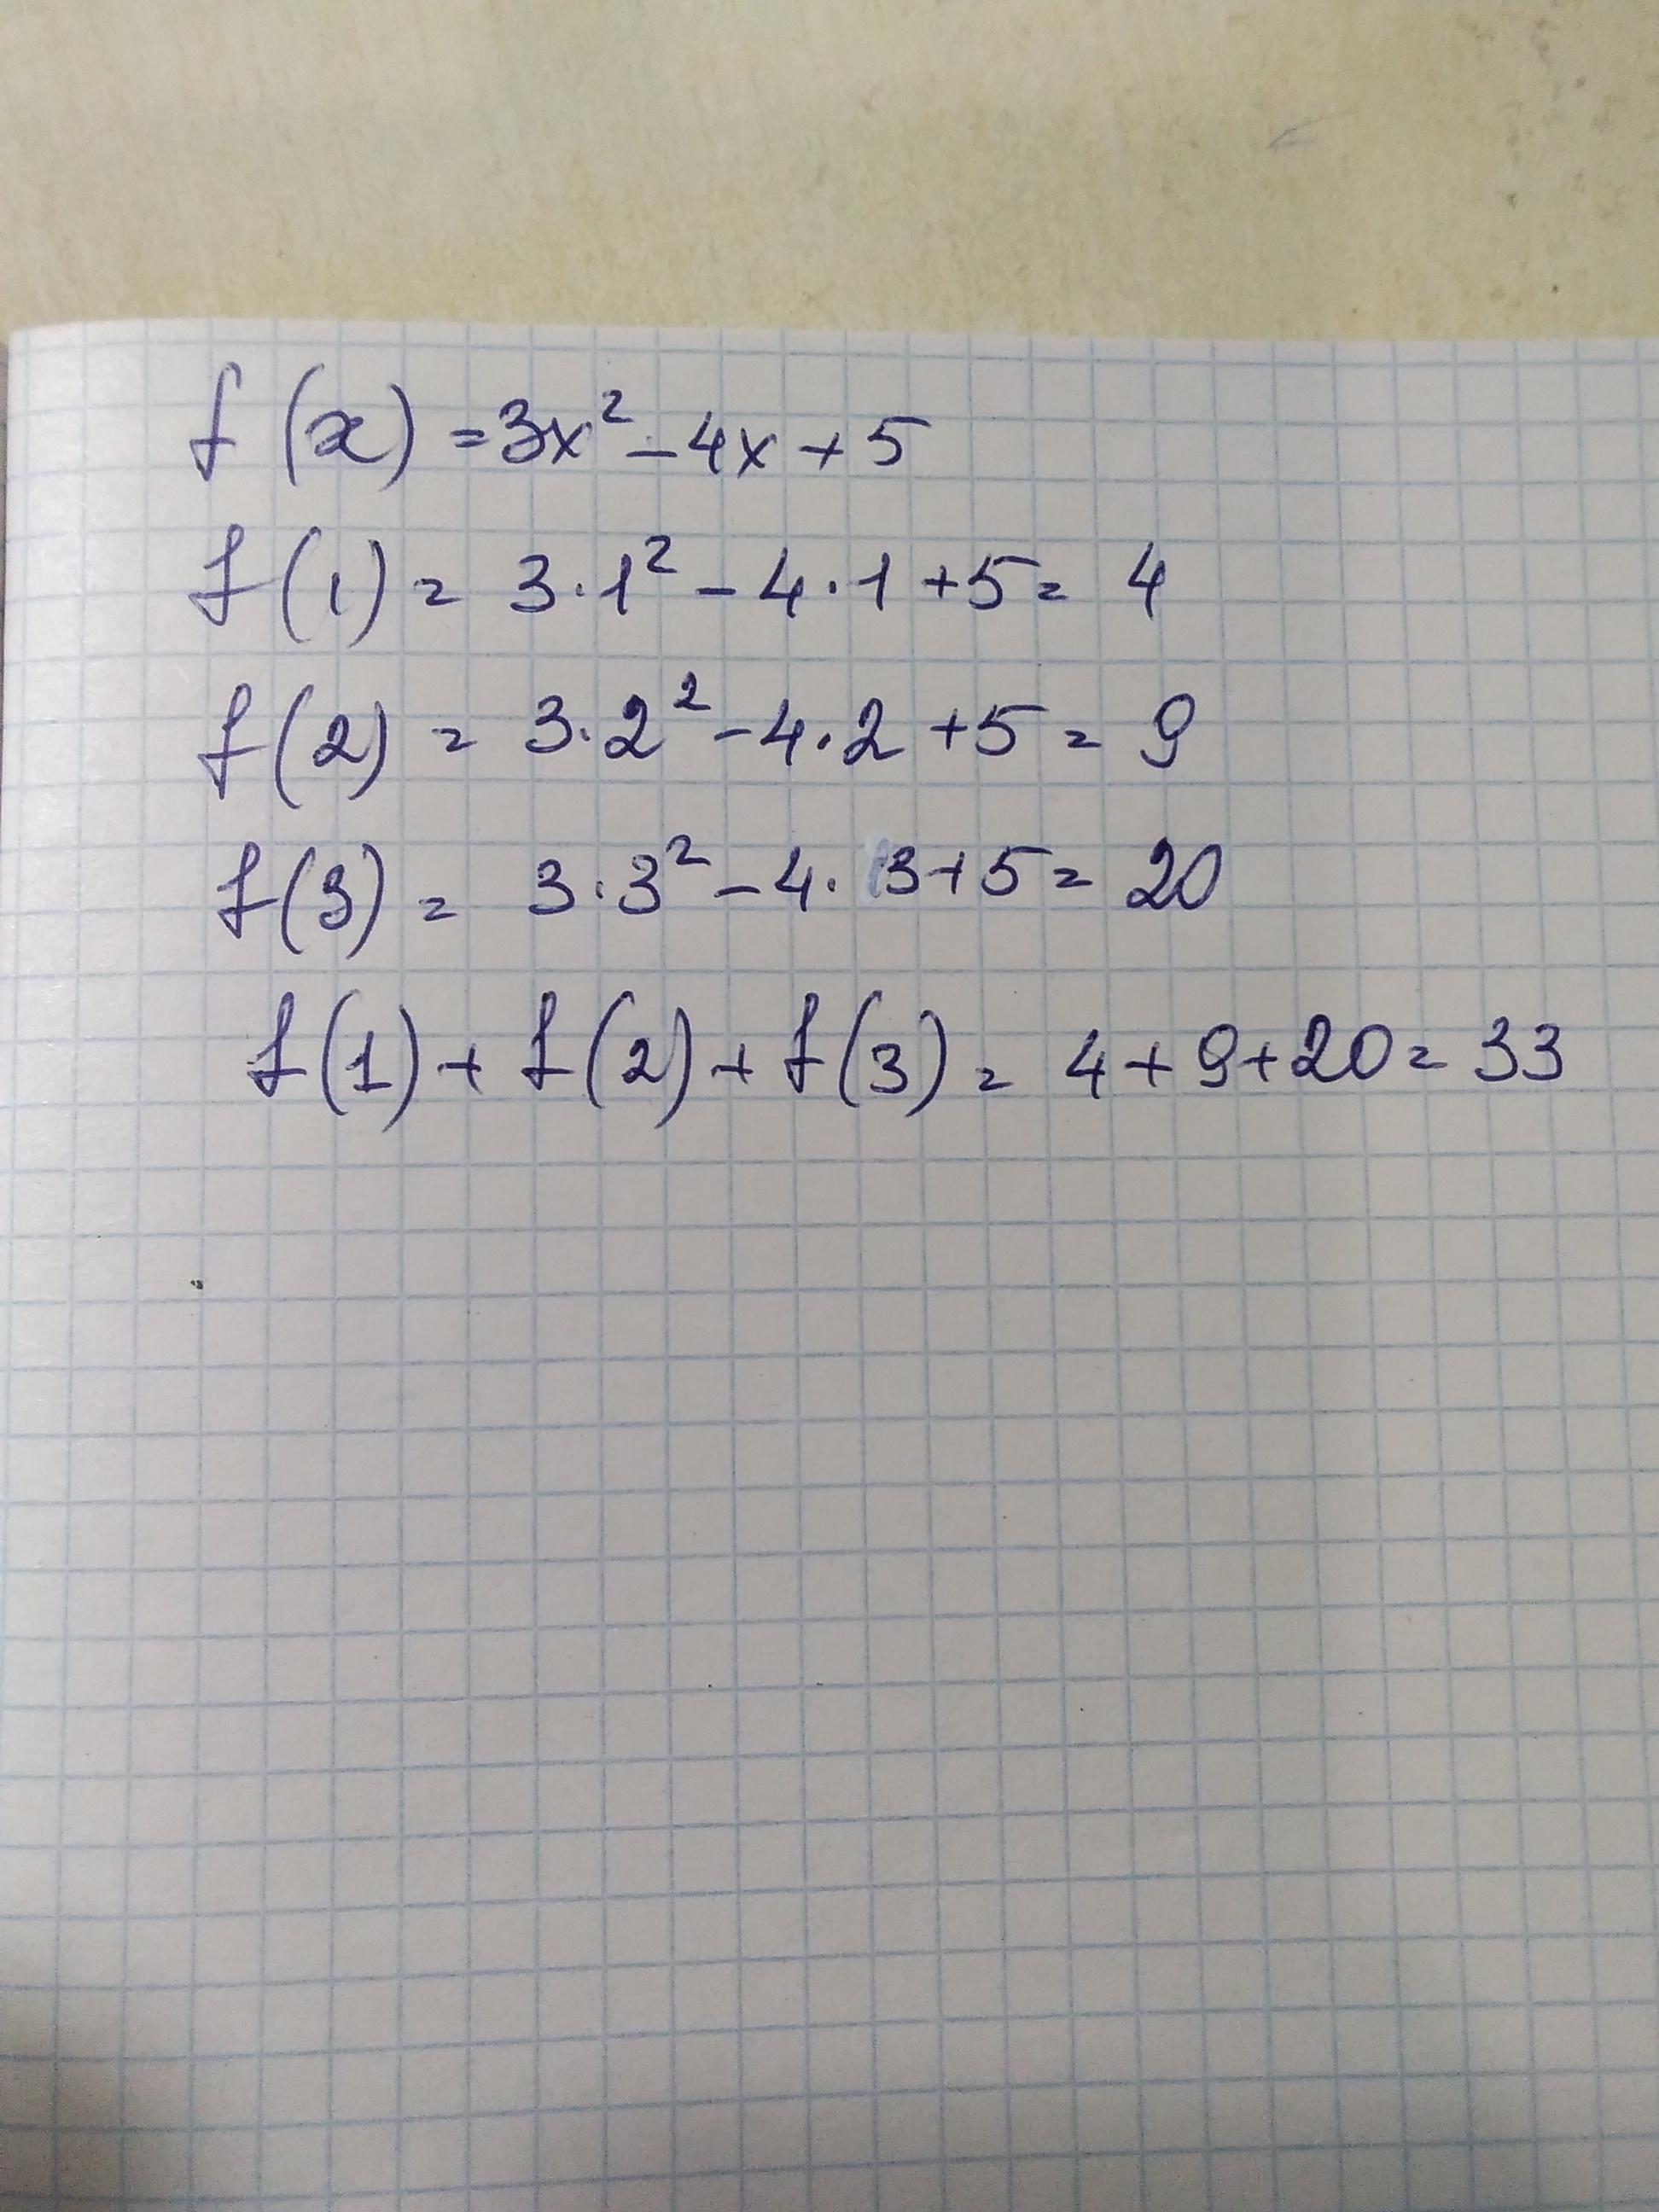 f(x) = 3x² - 4x + 5
f(1) = 3·1² - 4·1 + 5 = 4
f(2) = 3·2² - 4·2 + 5 = 9
f(3) = 3·3² - 4·3 + 5 = 20
f(1) + f(2) + f(3) = 4 + 9 + 20 = 33